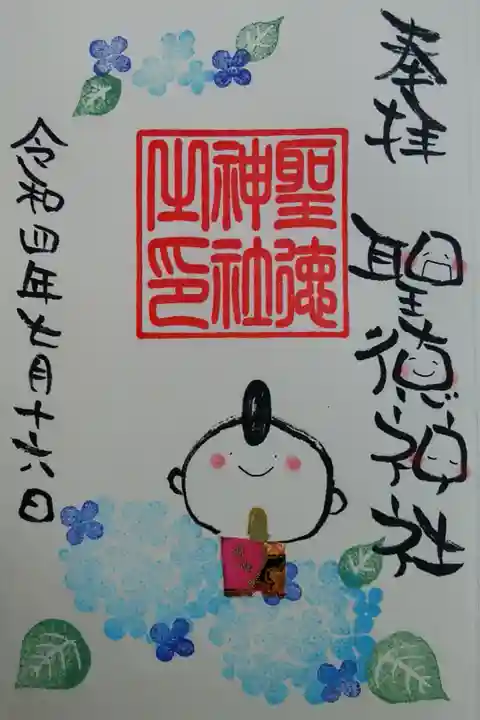 奉拝
聖徳神社
聖徳
神社
之印
令和四年七月十六日